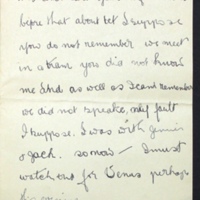 before that about bet I suppose
you do not remember we meet
in a train you did not know
me And as well as I can remember
we did not speake, my fault
I suppose. I was with Jennie
& Jack. so now — I must
watch out for Venus perhaps